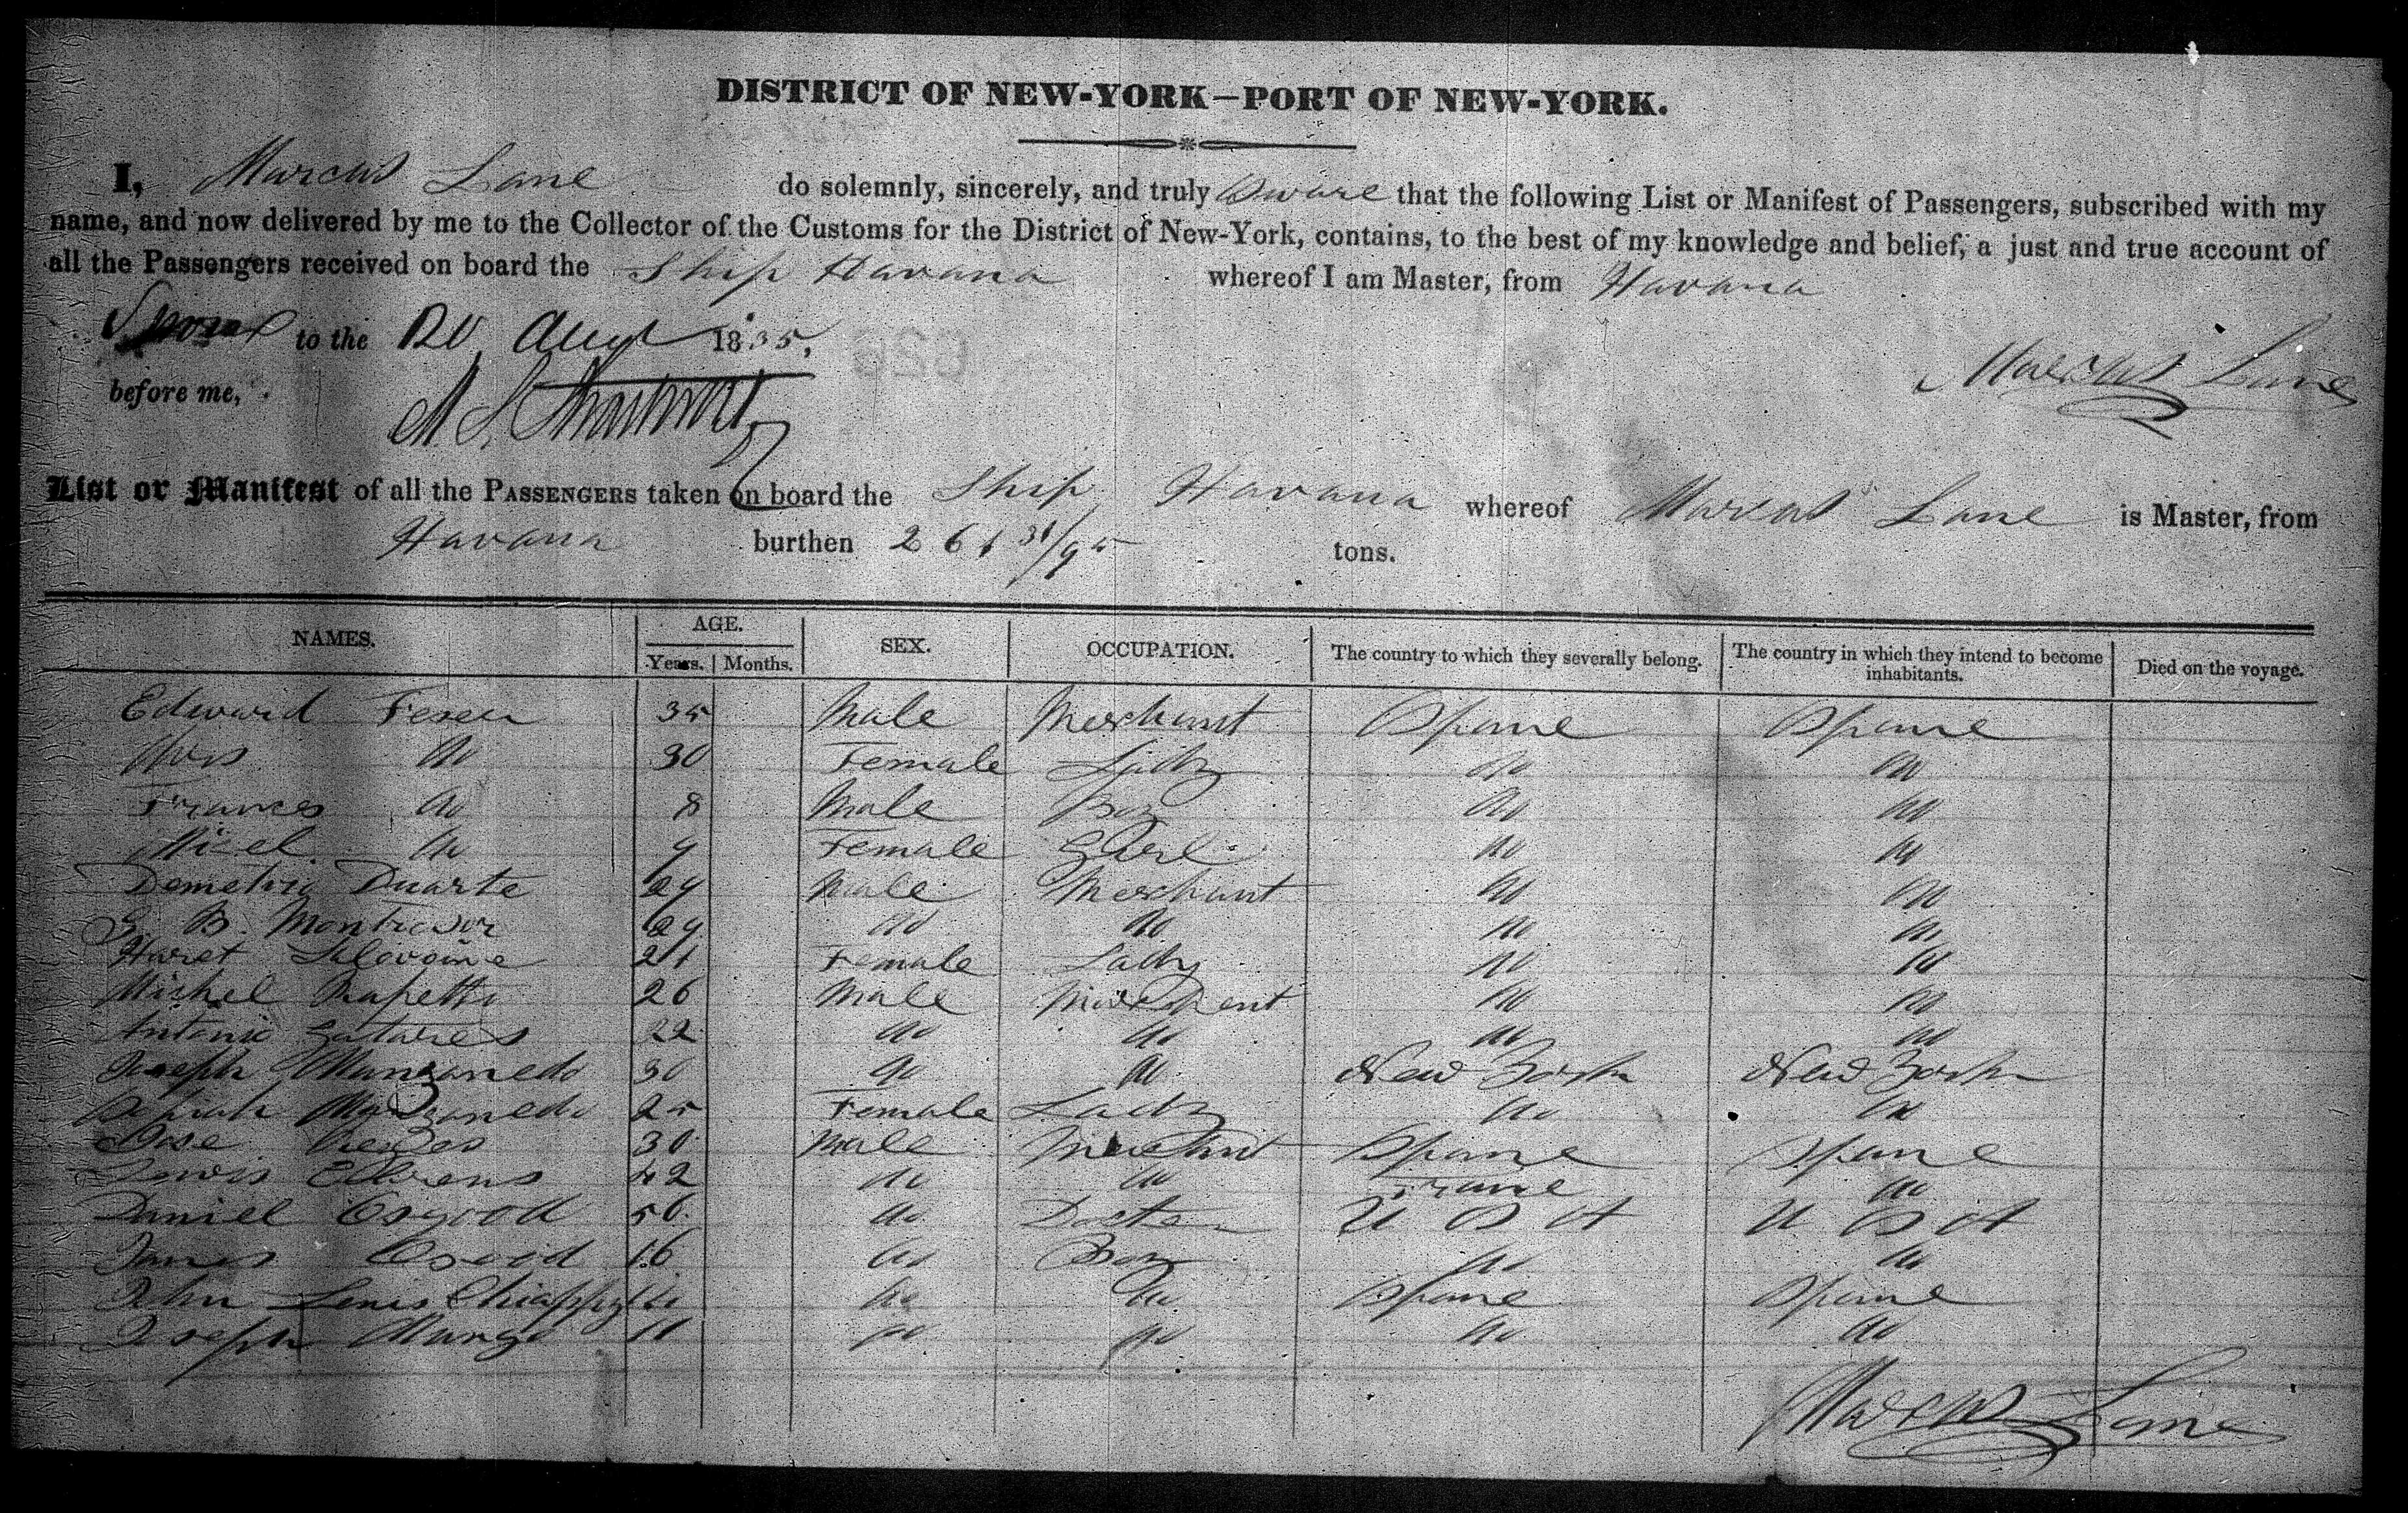 DISTRICT OF NEW-YORK—PORT OF NEW-YORK.
I, Marcus Lane do solemnly, sincerely, and truly Sware that the following List or Manifest of Passengers, subscribed with my
name, and now delivered by me to the Collector of the Customs for the District of New-York, contains, to the best of my knowledge and belief, a just and true account of
all the Passengers received on board the Ship Havana whereof I am Master, from Havana
to the 20 Augt 1835,
Marcus Lane
before me,
List or Manifest of all the PASSENGERS taken on board the Ship Havana whereof Marcus Lane is Master, from
Havana burthen 261 31/95 tons.
NAMES. AGE. Years. Months. SEX. OCCUPATION. The country to which they severally belong. The country in which they intend to become inhabitants. Died on the voyage.
Edward Feser 35 Male Merchant Spane Spane
Mrs do 30 Female Lady do do
Frances do 8 Male Boy do do
do Female Gherl do do
Demetrio Duarte 29 Male Merchant do do
G. B. Montresor 29 do do do do
Haret 21 Female Lady do do
Michel Rapetti 26 Male do do
Antonio 22 do do do do
Joseph Manzanedo 30 do do New York New York
Manzanedo 25 Female Lady do do
Jose Reges 30 Male Spane Spane
Lewis 42 do do Franse do
Daniel Osgood 50 do Docter U S A U S A
James Osgood 16 do Boy do do
John Lewis Chiappy do do Spane Spane
Joseph 11 do do do do
Marcus Lane